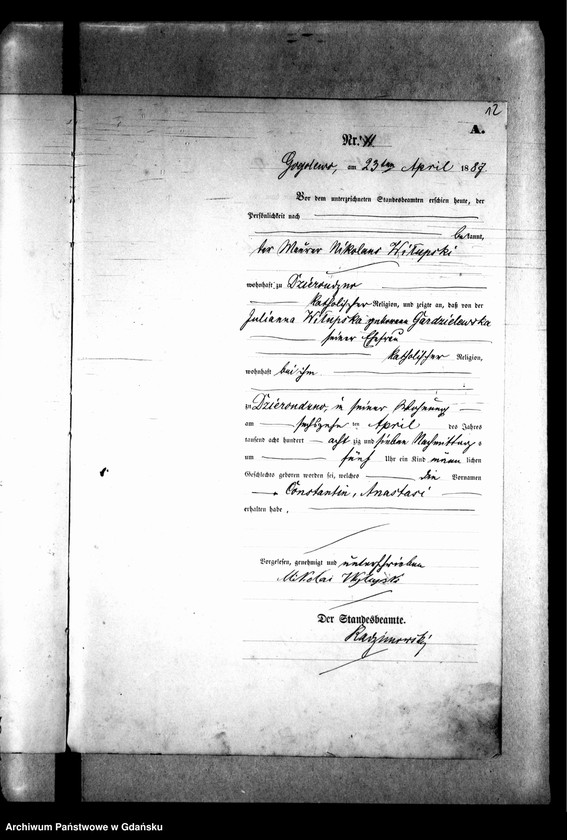 12
A.
Nr. 11
Gogolewo, am 23ten April 1887
Vor dem unterzeichneten Standesbeamten erschien heute, der
Persönlichkeit nach
bekannt,
der Maurer Nikolaus Witupski
wohnhaft zu Dzierondzno
katholischer Religion, und zeigte an, daß von der
Julianna Witupska geborene Gardzielewska
seiner Ehefrau
katholischer Religion,
wohnhaft bei ihm
zu Dzierondzno, in seiner Wohnung
am sechszehn ten April des Jahres
tausend acht hundert achtzig und sieben Nachmittags
um fünf Uhr ein Kind männlichen
Geschlechts geboren worden sei, welches die Vornamen
Constantin, Anastasi
erhalten habe.
Vorgelesen, genehmigt und unterschrieben
Mikolai
Der Standesbeamte.
Radzimowski
Archiwum Państwowe w Gdańsku